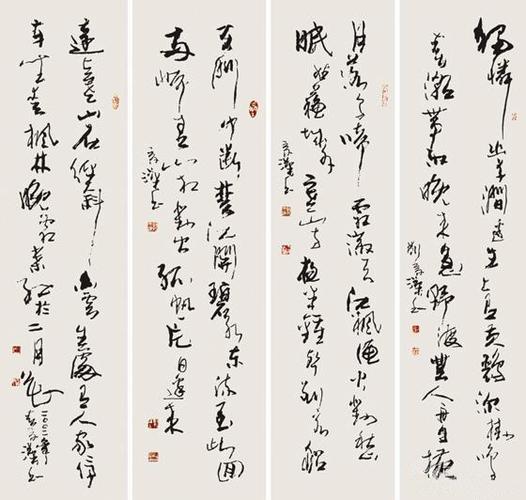 独怜幽草涧边生上有黄鹂深树鸣
春潮带雨晚来急野渡无人舟自横
月落乌啼霜满天江枫渔火对愁
眠姑苏城外寒山寺夜半钟声到客船
天门中断楚江开碧水东流至此回
两岸青山相对出孤帆一片日边来
远上寒山石径斜白云生处有人家停
车坐爱枫林晚霜叶红于二月花